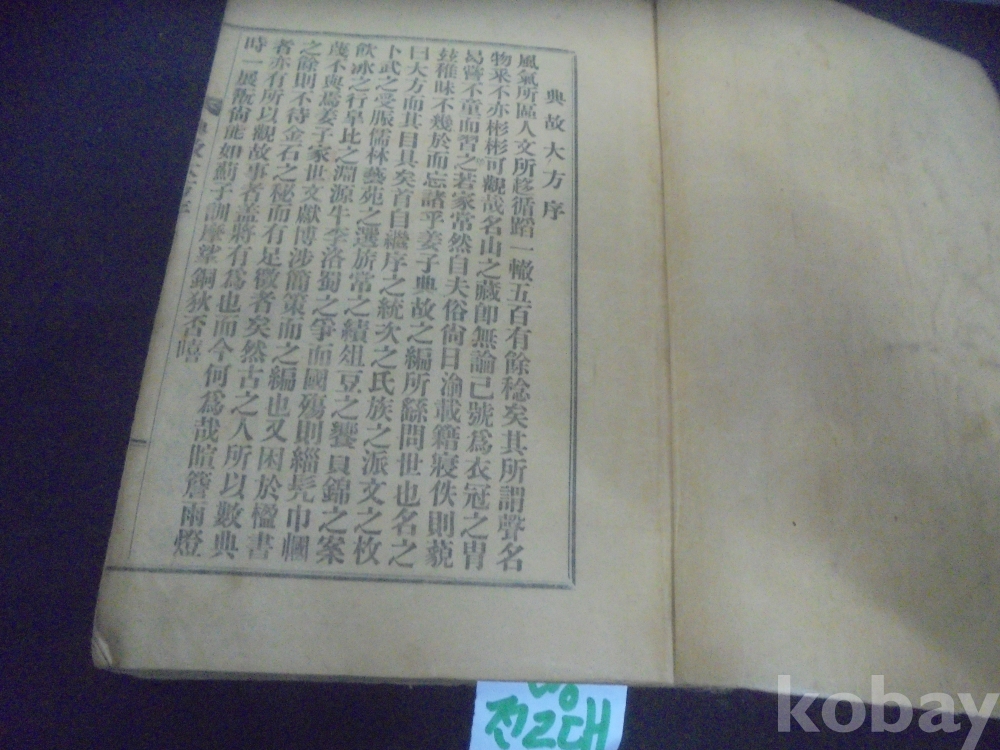 典故大方序
風氣所區人文所趍循蹈一轍五百有餘稔矣其所謂聲名
物采不亦彬彬可觀哉名山之藏卽無論已號爲衣冠之冑
曷嘗不童而習之若家常然自夫俗尙日渝載籍寖佚則藐
玆稚昧不幾於而忘諸乎姜子典故之編所繇問世也名之
曰大方而其目具矣首自繼序之統次之氏族之派文之枚
卜武之受脤儒林藝苑之選旂常之績俎豆之饗貝錦之案
飮冰之行臯比之淵源牛李洛蜀之爭而國殤則緇髡巾幗
蔑不與焉姜子家世文獻博涉簡策而之編也又困於檻書
之餘則不待金石之秘而有足徵者矣然古之人所以數典
者亦有所以觀故事者盖將有爲也而今何爲哉暄簷雨燈
時一展閱尙能如薊子訓摩挲銅狄否噫
典故大方序
전고대
kobay